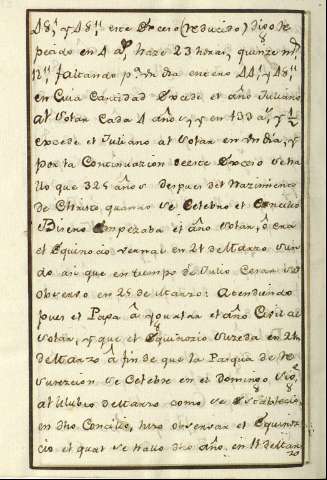 48' y 48'' este Exceso (reducido) digo re
petido en 4 as haze 23 horas, quinze ms
12'' faltando pa un dia entero 44' y 48''
en Cuia Cantidad Excede el año Juliano
al Solar Cada 4 años, y en 133 as y 1/2
excede el Juliano al Solar en un dia, y
por la Continuacion de este Exceso se ha
llo que 325 años despues del Nazimiento
de Christo, quando se Celebro el Concilio
Niseno Empezaba el año Solar, ó era
el Equinocio vernal en 21 de Marzo sien
do asi que en tiempo de Julio Cesar se
observo en 25 de Marzo: Atendiendo
pues el Papa â Ajuntar el año Civil al
Solar, y que el Equinozio suzeda en 21
de Marzo â fin de que la Pasqua de Re
surezion se Celebre en el Domingo
al Plubio de Marzo como se Establecio
en dho Concilio, hizo observar el Equino
cio el qual se hallo dho año en 11 de Mar
zo